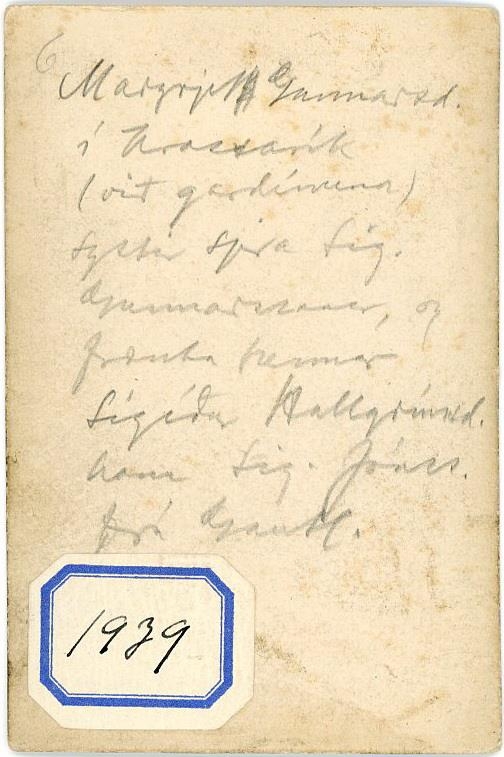 6
Margrjet Gunnarsd.
í Krossavík
(við gardínuna)
systir sjera Sig.
Gunnarssonar, og
frænka hennar
Sigríður Hallgrímsd.
kona Sig. Jónss.
frá
1939